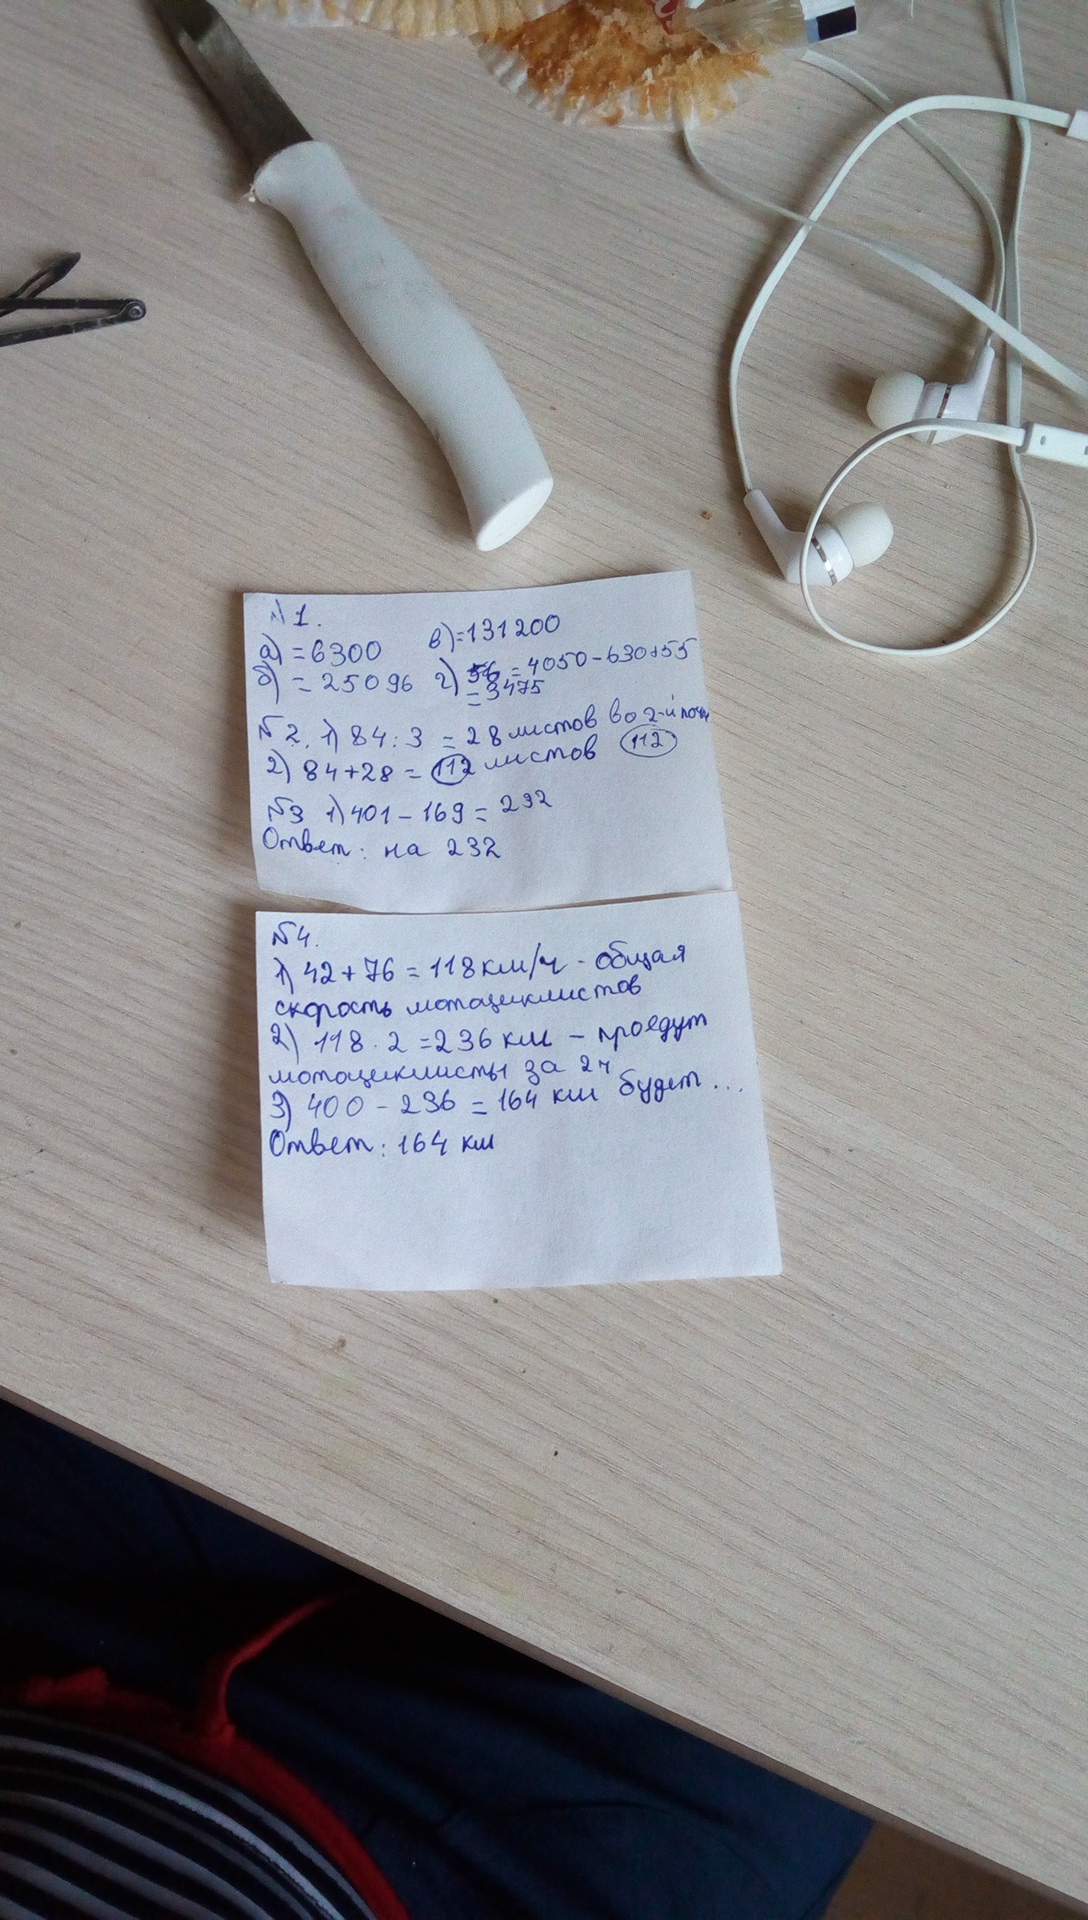 №1.
а) =6300 в)=131200
б) = 25096 г) =4050-630+55
=3475
№2. 1) 84:3 = 28 листов во 2-й
2) 84+28 = 112 листов 112
№3 1) 401-169= 232
Ответ: на 232
№4.
1) 42+76 = 118 км/ч - общая
скорость мотоциклистов
2) 118 · 2 =236 км - проедут
мотоциклисты за 2ч
3) 400 - 236 = 164 км будет ...
Ответ: 164 км